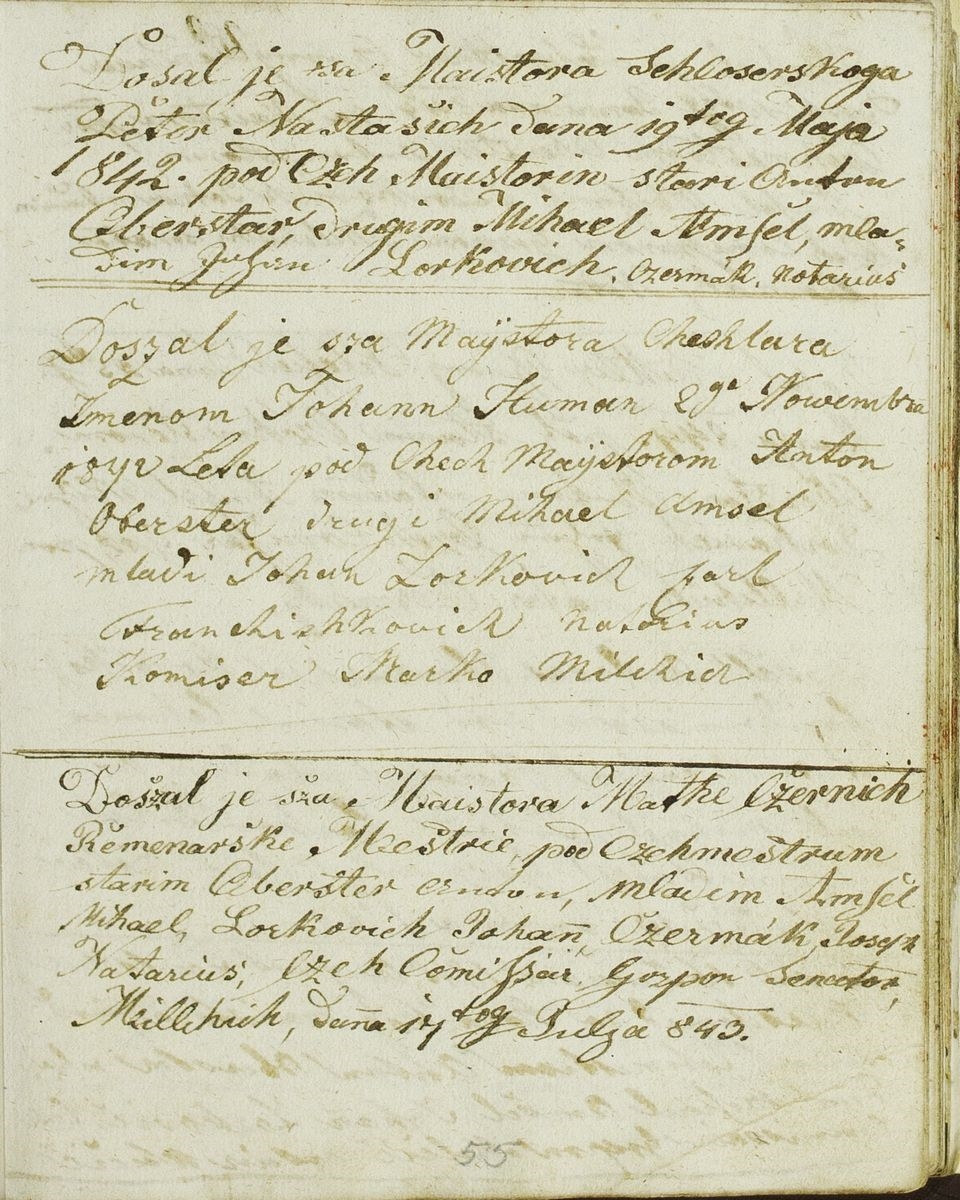 Došal je sza Maistora Schloserskoga
Petër Nastašich dana 19tog Maja
1842. pod Czeh Maistorin stari Anton
Oberstar, drugim Mihael Amsel, mla-
dim Johan Lorkovich. Czermák. Notarius
Doszal je sza Maÿstora Cheshlara
Imenom Johann Human 29a Novembra
1842 Leta pod Chech Maÿstorom Anton
Oberster drugi Mihael Amsel
mladi Johan Lorkovich
Franchishkovich Notarius
Komiser Marko Milchich
Doszal je sza Maistora Mathe Czernich
Remenarske Meštrie, pod Czehmeštrum
starim Oberster, mladim Amsel
Mihael, Lorkovich Johan̄, Czermák, Joseph
Natarius, Czeh Comissar, Gozpon Senator,
Millchich, dana 17tog Julja 843.
55